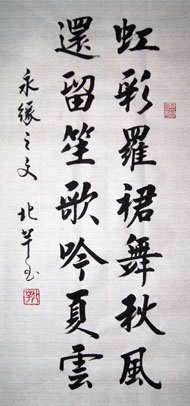 虹彩羅裙舞秋風
還留笙歌吟夏雲
永緣之文
北羊書